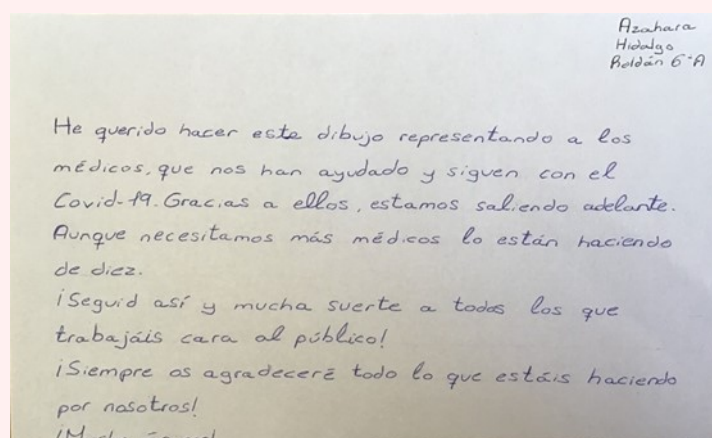 Azahara
Hidalgo
Roldán 6ºA
He querido hacer este dibujo representando a los
médicos, que nos han ayudado y siguen con el
Covid-19. Gracias a ellos, estamos saliendo adelante.
Aunque necesitamos más médicos lo están haciendo
de diez.
¡Seguid así y mucha suerte a todos los que
trabajáis cara al público!
¡Siempre os agradeceré todo lo que estáis haciendo
por nosotros!